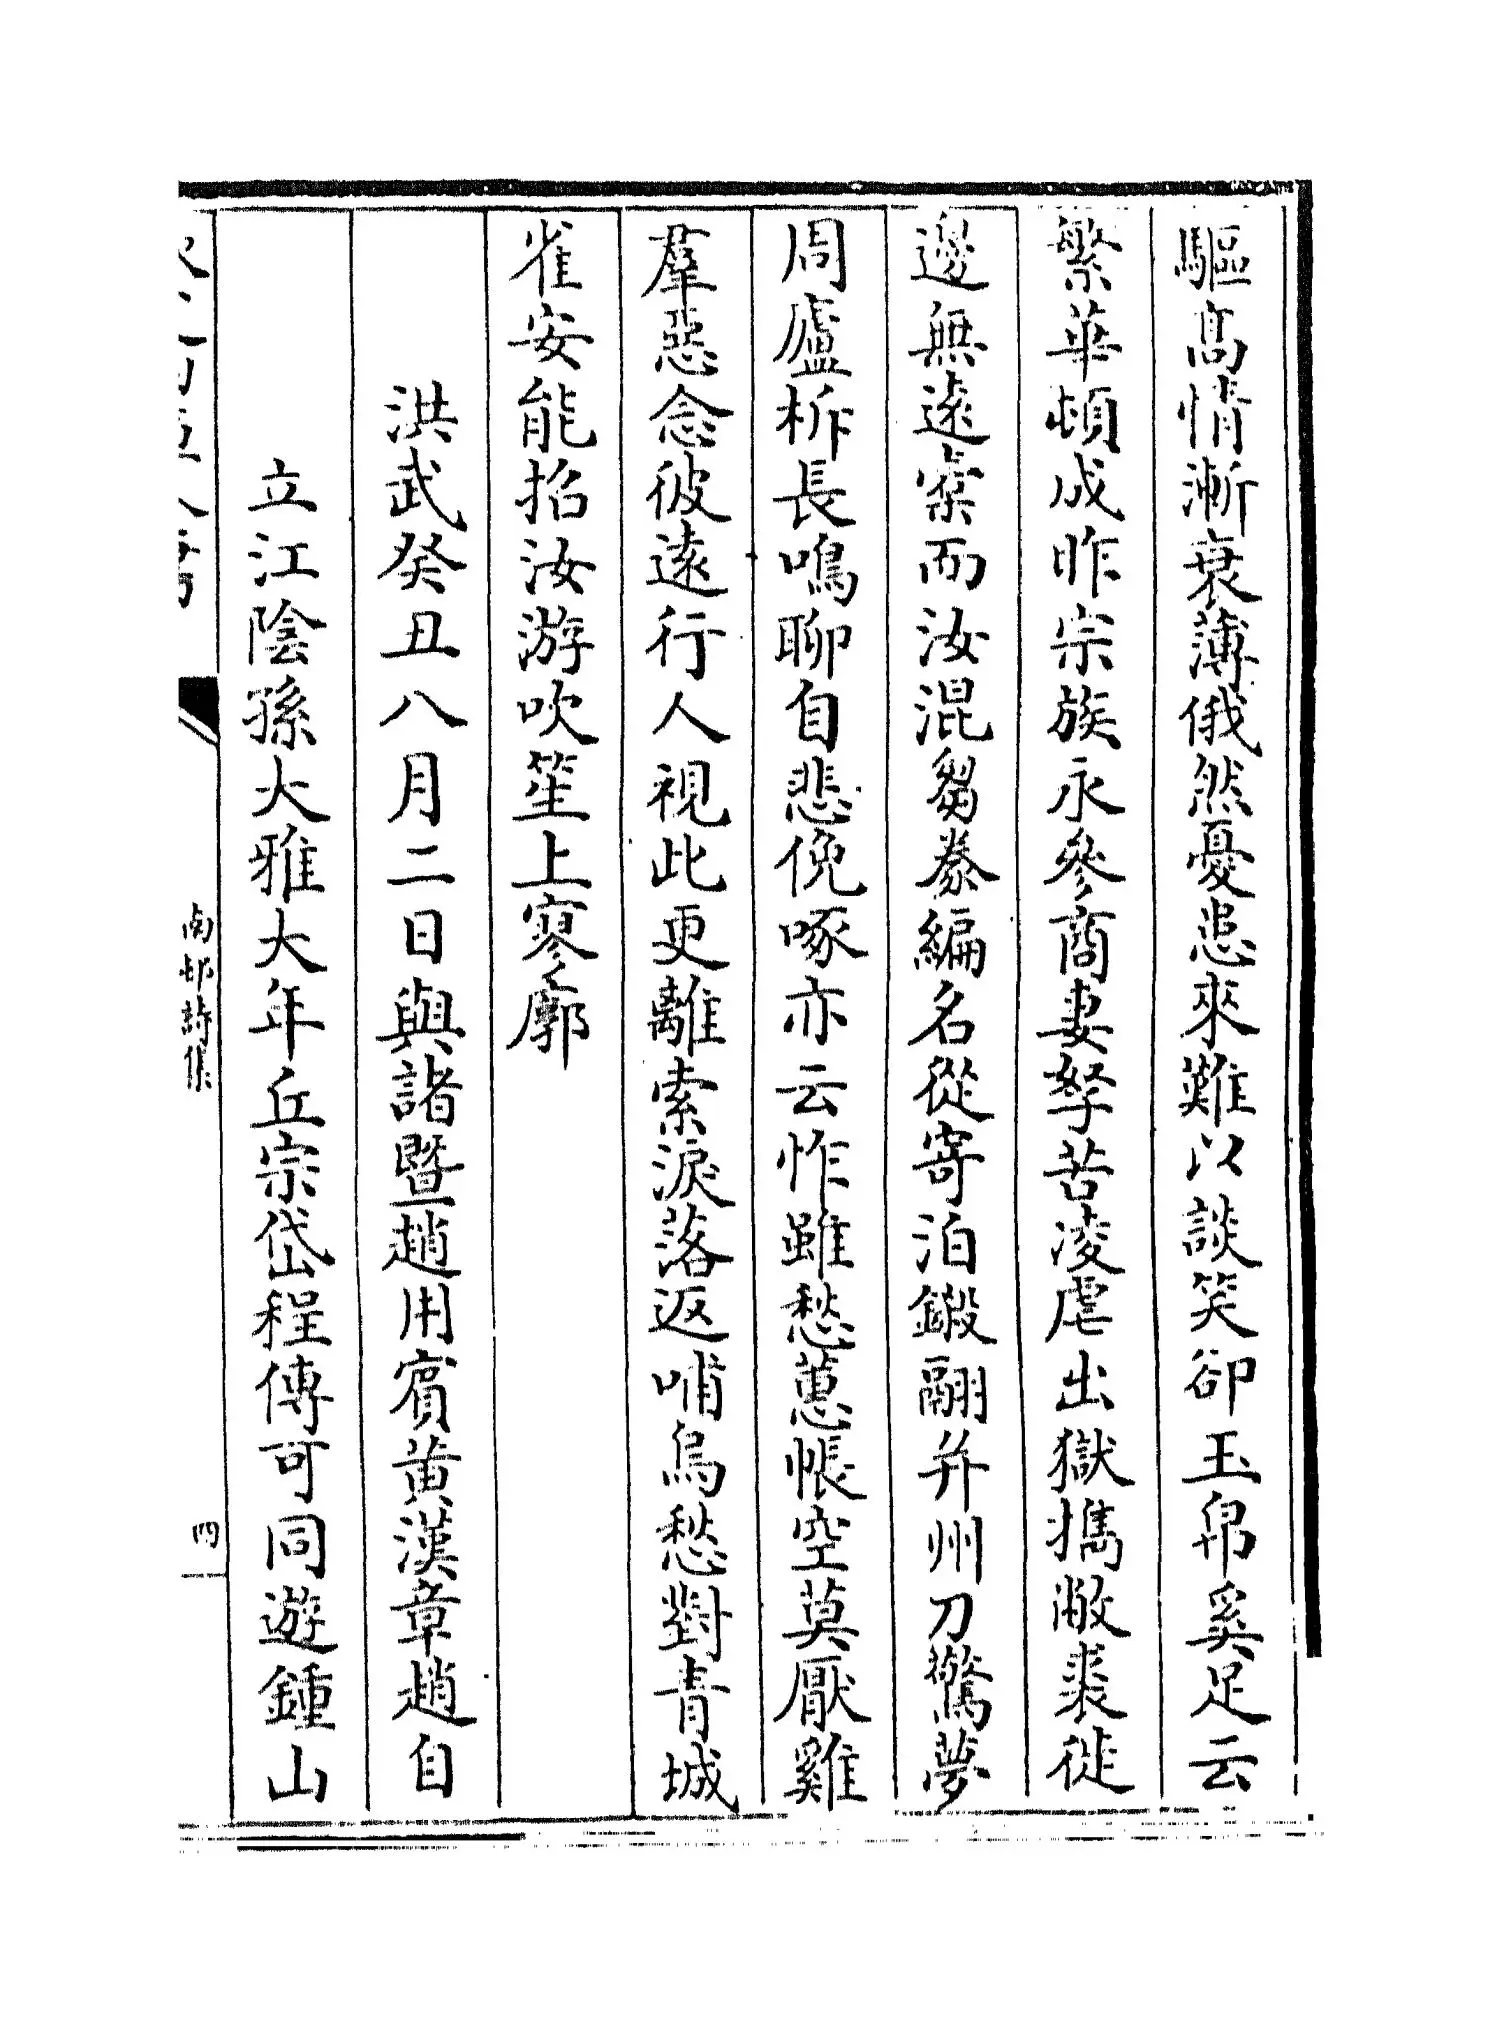 驅高情漸衰薄俄然憂患來難以談笑卻玉帛奚足云
繁華頓成昨宗族永參商妻孥苦凌虐出獄攜敝裘徙
邊無遠寀而汝混芻豢編名從寄泊鎩翮并州刀驚夢
周廬柝長鳴聊自悲俛啄亦云怍雖愁蕙帳空莫厭雞
羣惡念彼遠行人視此更離索淚落返哺烏愁對青城
雀安能招汝游吹笙上寥廓
洪武癸丑八月二日與諸暨趙用賓黄漢章趙自
立江陰孫大雅大年丘宗岱程傳可同遊鍾山
南邨詩集
四